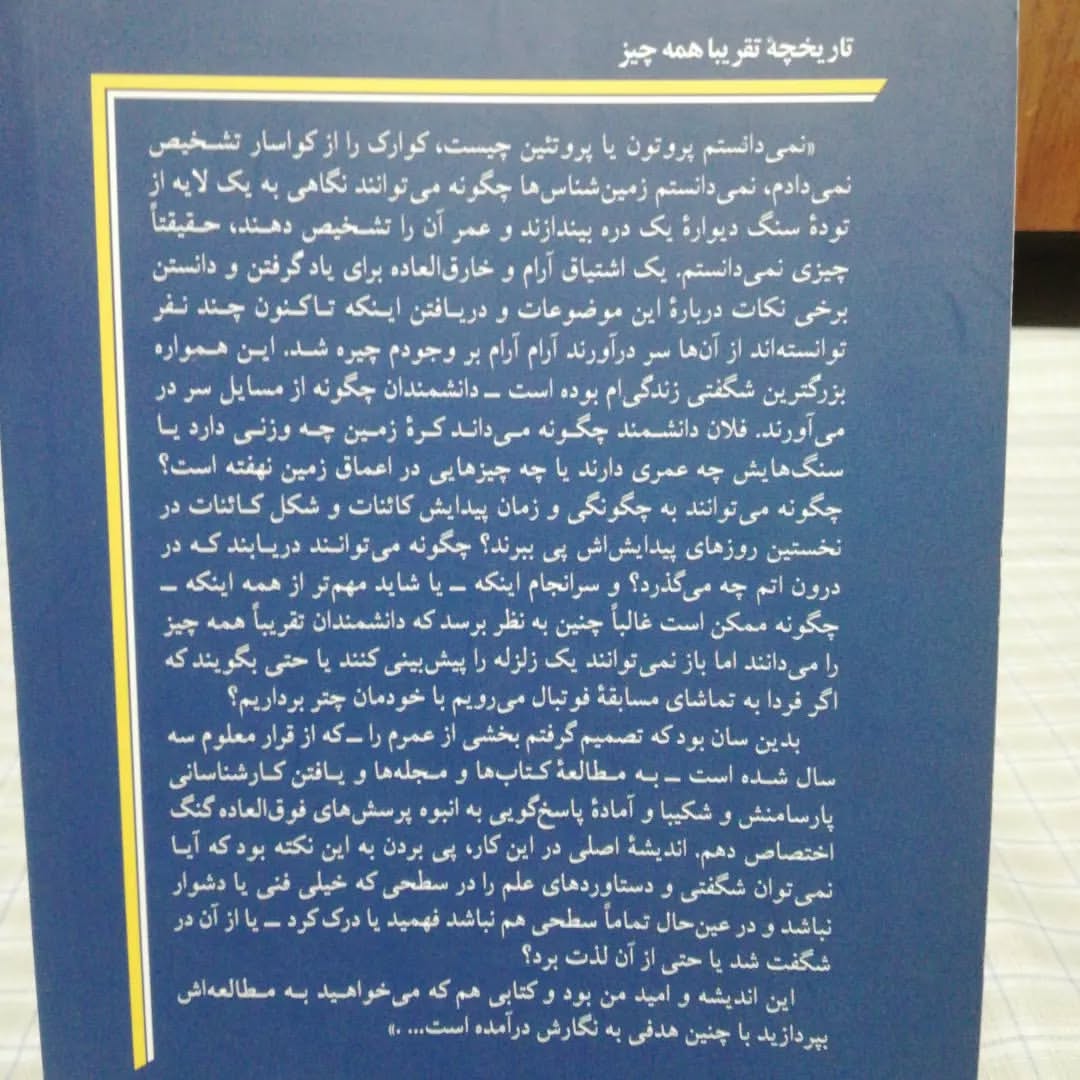 تاریخچهٔ تقریبا همه چیز
«نمی‌دانستم پروتون یا پروتئین چیست، کوارک را از کواسار تشـخیص
نمی‌دادم، نمی‌دانستم زمین‌شناس‌ها چگونه می‌توانند نگاهی به یک لایه از
تودهٔ سنگ دیوارهٔ یک دره بیندازند و عمر آن را تشـخیص دهـند، حـقیقتاً
چیزی نمی‌دانستم. یک اشتیاق آرام و خارق‌العاده برای یادگرفتن و دانستن
برخی نکات دربارهٔ این موضوعات و دریـافتن ایـنکه تـاکـنون چـند نـفر
توانسته‌اند از آن‌ها سر درآورند آرام آرام بر وجودم چیره شـد. ایـن هـمواره
بزرگترین شگفتی زندگی‌ام بوده است ـ دانشمندان چگونه از مسایل سر در
می‌آورند. فلان دانشـمند چگـونه مـی‌دانـد کـرهٔ زمـین چـه وزنـی دارد یـا
سنگ‌هایش چه عمری دارند یا چه چیزهایی در اعماق زمین نهفته است؟
چگونه می‌توانند به چگونگی و زمان پیدایش کائنات و شکل کـائنات در
نخستین روزهای پیدایش‌اش پی ببرند؟ چگونه می‌توانـند دریـابند کـه در
درون اتم چه می‌گذرد؟ و سرانجام اینکه ـ یا شاید مهم‌تر از همه اینکه ـ
چگونه ممکن است غالباً چنین به نظر برسد که دانشمندان تقریباً همه چیز
را می‌دانند اما باز نمی‌توانند یک زلزله را پیش‌بینی کنند یا حتی بگویند که
اگر فردا به تماشای مسابقهٔ فوتبال می‌رویم با خودمان چتر برداریم؟
بدین سان بود که تصمیم گرفتم بخشی از عمرم را ـ که از قرار معلوم سه
سال شده است ـ بـه مـطالعهٔ کـتاب‌ها و مـجله‌ها و یـافتن کـارشناسانی
پارسامنش و شکیبا و آمادهٔ پاسخ‌گویی به انبوه پرسش‌های فوق‌العاده گنگ
اختصاص دهم. اندیشهٔ اصلی در این کار، پی بردن به این نکته بود که آیـا
نمی‌توان شگفتی و دستاوردهای علم را در سطحی که خیلی فنی یا دشوار
نباشد و در عین‌حال تماماً سطحی هم نباشد فهمید یا درک کرد ـ یا از آن در
شگفت شد یا حتی از آن لذت برد؟
این اندیشه و امید من بود و کتابی هم که می‌خواهـید بـه مـطالعه‌اش
بپردازید با چنین هدفی به نگارش درآمده است... .»